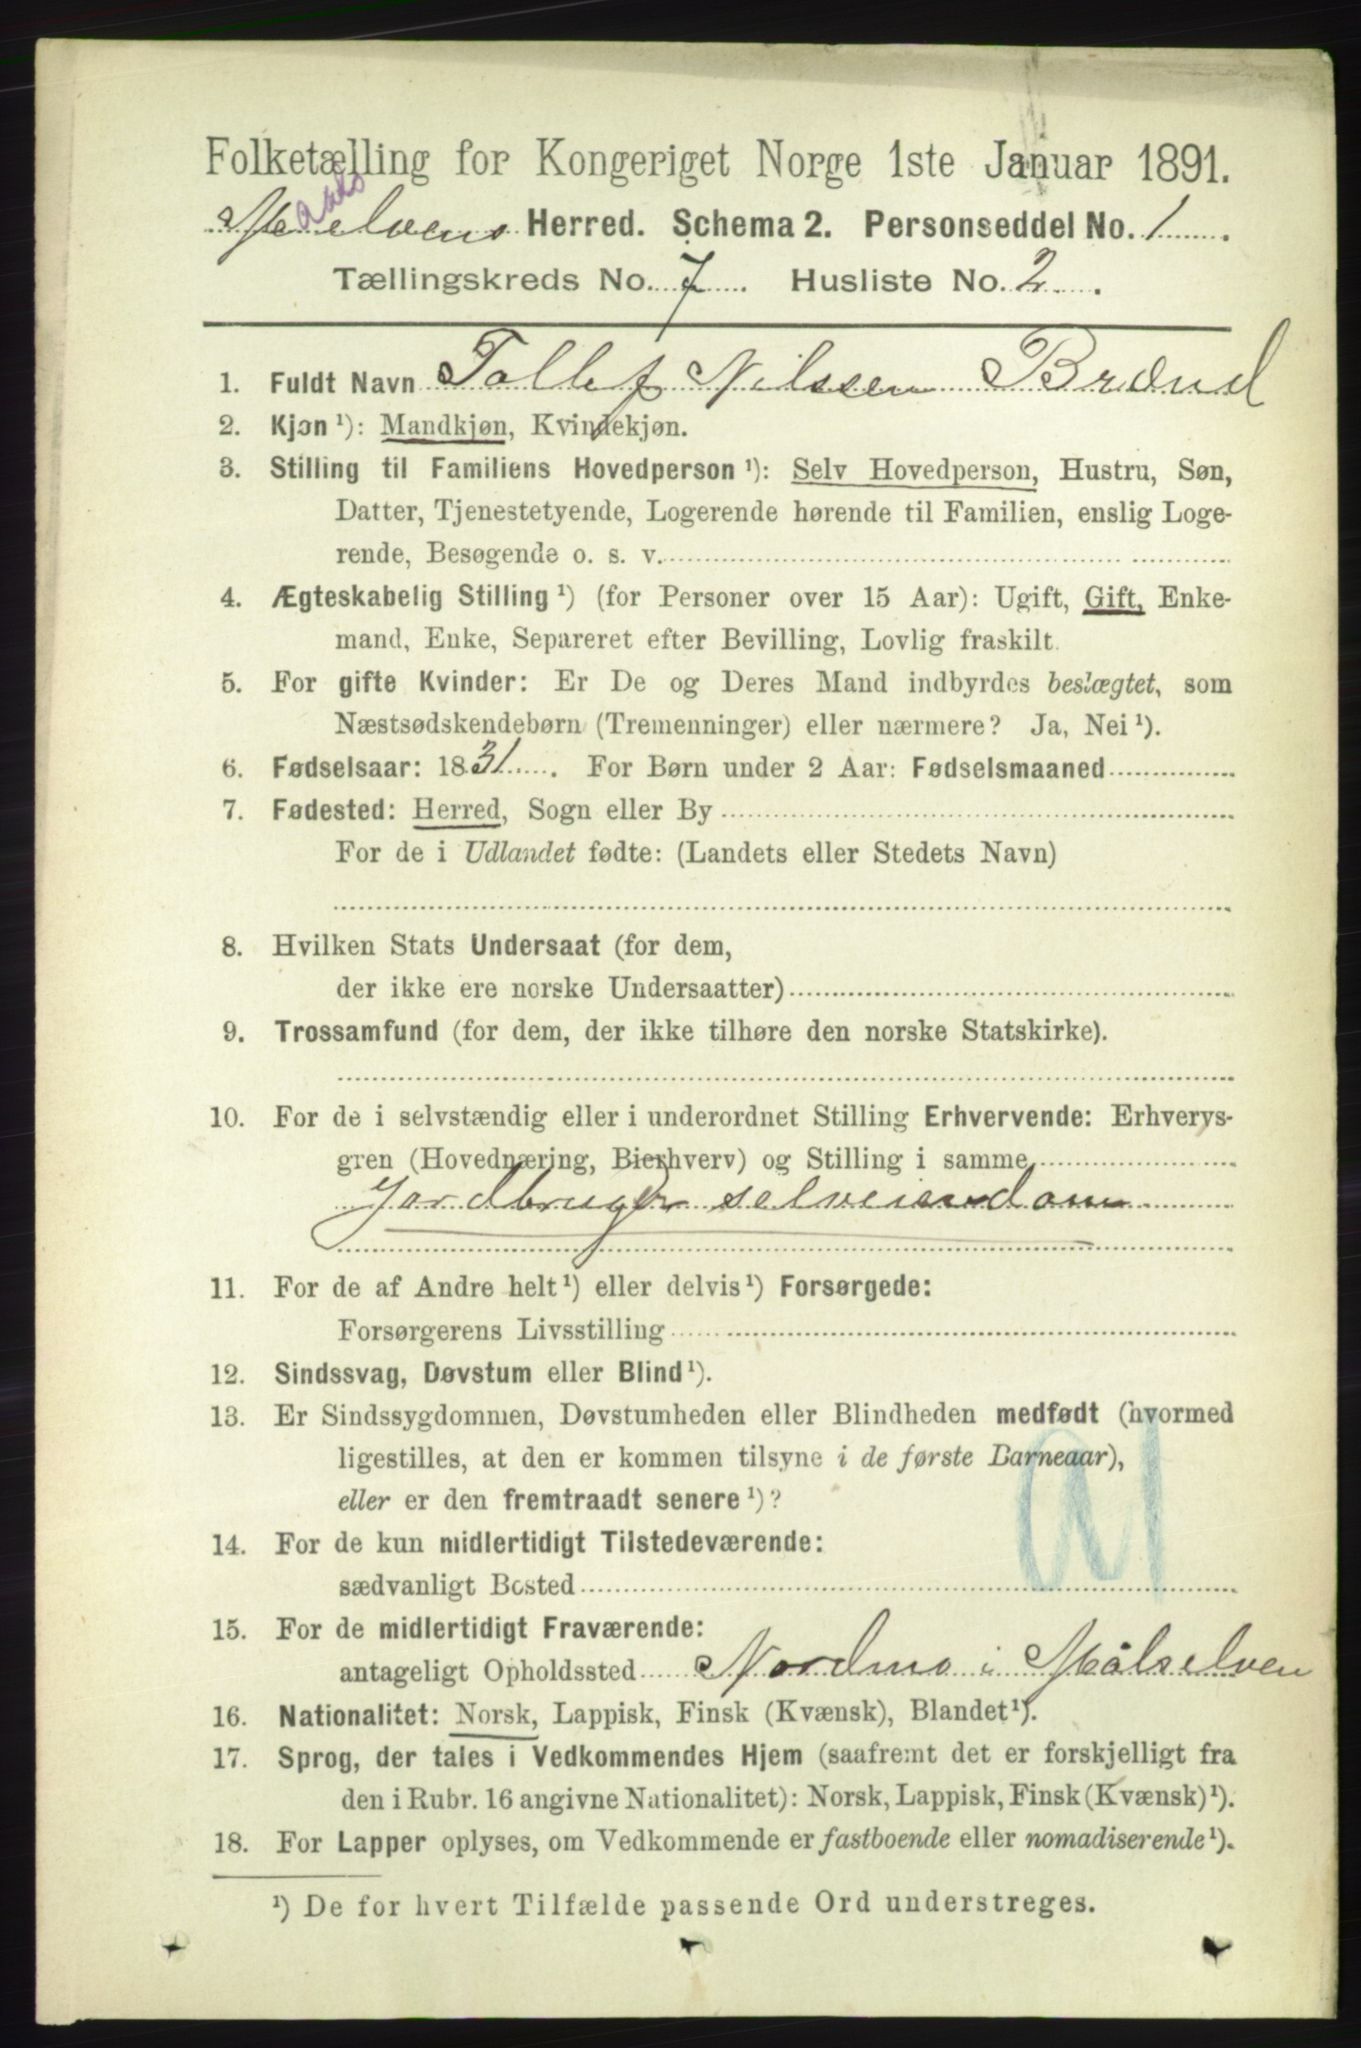 Folketælling for Kongeriget Norge 1ste Januar 1891.
Herred. Schema 2. Personseddel No. 1
Tællingskreds No. 7. Husliste No. 2.
1. Fuldt Navn Tollef Nilssen Brænd
2. Kjøn ¹): Mandkjøn, Kvindekjøn.
3. Stilling til Familiens Hovedperson ¹): Selv Hovedperson, Hustru, Søn,
Datter, Tjenestetyende, Logerende hørende til Familien, enslig Loge-
rende, Besøgende o. s. v.
4. Ægteskabelig Stilling ¹) (for Personer over 15 Aar): Ugift, Gift, Enke-
mand, Enke, Separeret efter Bevilling, Lovlig fraskilt.
5. For gifte Kvinder: Er De og Deres Mand indbyrdes beslægtet, som
Næstsødskendebørn (Tremenninger) eller nærmere? Ja, Nei ¹).
6. Fødselsaar: 1831. For Børn under 2 Aar: Fødselsmaaned
7. Fødested: Herred, Sogn eller By
For de i Udlandet fødte: (Landets eller Stedets Navn)
8. Hvilken Stats Undersaat (for dem,
der ikke ere norske Undersaatter)
9. Trossamfund (for dem, der ikke tilhøre den norske Statskirke).
10. For de i selvstændig eller i underordnet Stilling Erhvervende: Erhvervs-
gren (Hovednæring, Bierhverv) og Stilling i samme
Jordbruger selveiendom
11. For de af Andre helt ¹) eller delvis ¹) Forsørgede:
Forsørgerens Livsstilling
12. Sindssvag, Døvstum eller Blind ¹).
13. Er Sindssygdommen, Døvstumheden eller Blindheden medfødt (hvormed
ligestilles, at den er kommen tilsyne i de første Barneaar),
eller er den fremtraadt senere ¹)?
14. For de kun midlertidigt Tilstedeværende:
sædvanligt Bosted
15. For de midlertidigt Fraværende:
antageligt Opholdssted Nordmo i Målselven
16. Nationalitet: Norsk, Lappisk, Finsk (Kvænsk), Blandet ¹).
17. Sprog, der tales i Vedkommendes Hjem (saafremt det er forskjelligt fra
den i Rubr. 16 angivne Nationalitet): Norsk, Lappisk, Finsk (Kvænsk) ¹).
18. For Lapper oplyses, om Vedkommende er fastboende eller nomadiserende ¹).
¹) De for hvert Tilfælde passende Ord understreges.